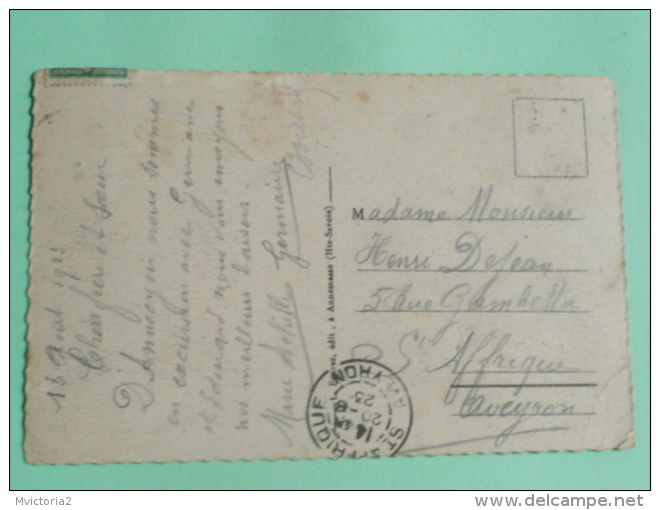 18 Août 1923
Chers frère et Sœur
D'Annecy où nous sommes
en excursion avec Germaine
et nous vous envoyons
nos meilleurs baisers.
Marie Achille Germaine
Edouard
édit., à Annemasse (Hte-Savoie)
Madame Monsieur
Henri
5 Rue Gambetta
St Affrique
Aveyron
ST AFFRIQUE
AVEYRON
14
20 - 8
23
Mvictoria2
delcampe.net